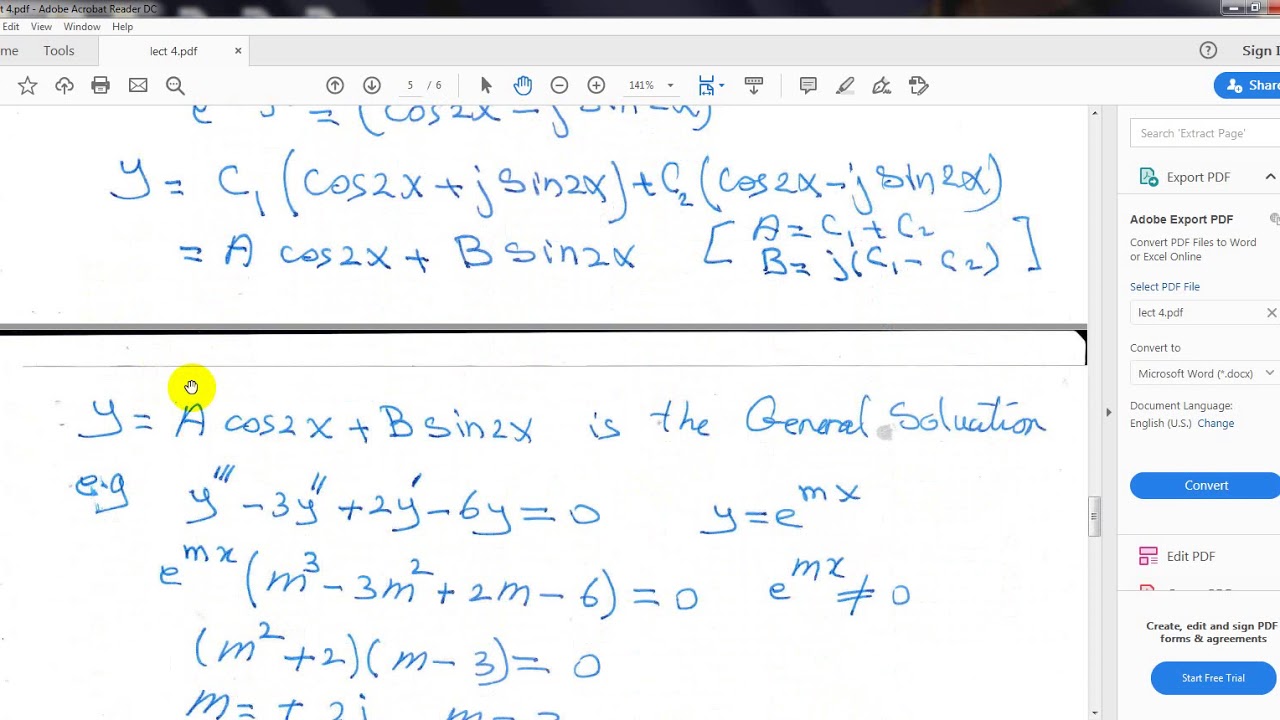 t 4.pdf - Adobe Acrobat Reader DC
Edit View Window Help
me Tools lect 4.pdf × Sign I
5 / 6 141% Share
= (cos2x - j sin
y = C₁ (cos2x + j sin2x) + C₂ (cos2x - j sin2x)
= A cos2x + B sin2x [ A = C₁ + C₂
B = j(C₁ - C₂) ]
y = A cos2x + B sin2x is the General Soluation
e.g y''' - 3y'' + 2y' - 6y = 0 y = e^mx
e^mx (m³ - 3m² + 2m - 6) = 0 e^mx ≠ 0
(m² + 2)(m - 3) = 0
m = ± 2j
Search 'Extract Page'
Export PDF
Adobe Export PDF
Convert PDF Files to Word
or Excel Online
Select PDF File
lect 4.pdf ×
Convert to
Microsoft Word (*.docx)
Document Language:
English (U.S.) Change
Convert
Edit PDF
Create, edit and sign PDF
forms & agreements
Start Free Trial